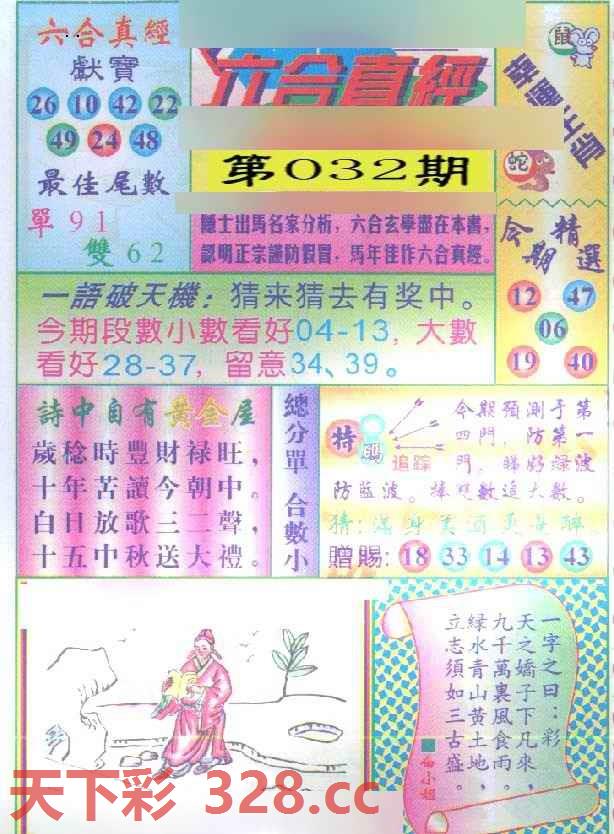 六合真經
獻寶
26 10 42 22
49 24 48
最佳尾數
單91
雙62
六合真經
第032期
隱士出馬名家分析，六合玄學盡在本書，
認明正宗謹防假冒，馬年佳作六合真經。
鼠
蛇
今期精選
12 47
06
19 40
一語破天機：猜来猜去有奖中。
今期段數小數看好04-13，大數
看好28-37，留意34、39。
詩中自有黃金屋
歲稔時豐財禄旺，
十年苦讀今朝中。
白日放歌三二聲，
十五中秋送大禮。
總分單 合數小
特碼
追踪
今期預測于第
四門，防第一
門，睇好綠波
防藍波。捧雙數追大數。
贈賜：18 33 14 13 43
一字之曰：彩
天之嬌子下凡來，
九千萬裏風食雨，
緑水青山黃土地，
立志須如三古盛。
天下彩 328.cc